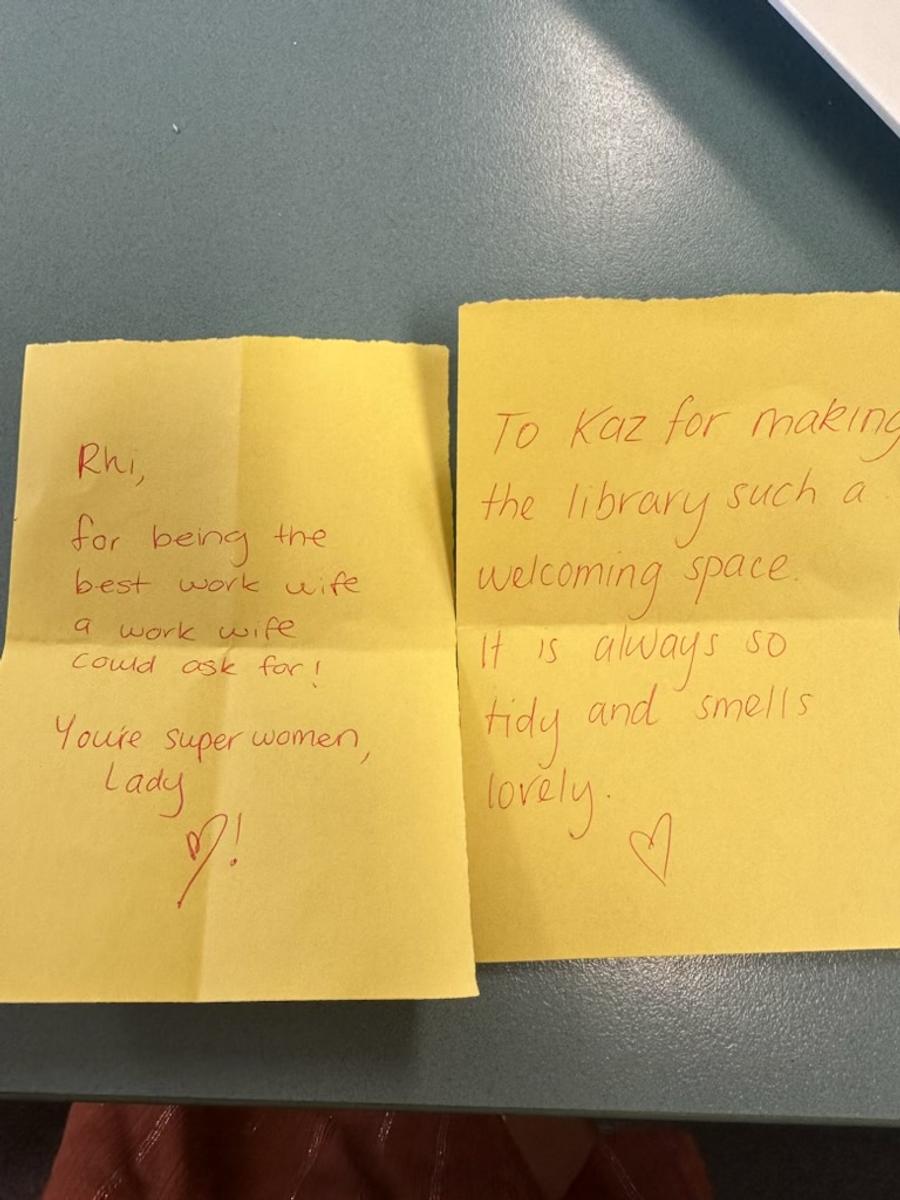 Rhi,
for being the
best work wife
a work wife
could ask for!
You're super women,
Lady
!
To Kaz for making
the library such a
welcoming space.
It is always so
tidy and smells
lovely.